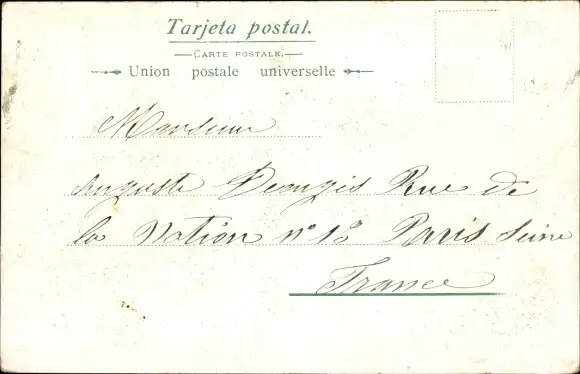 Tarjeta postal.
CARTE POSTALE.
Union postale universelle
Monsieur
Auguste Rue de
la Nation n° 18 Paris Seine
France